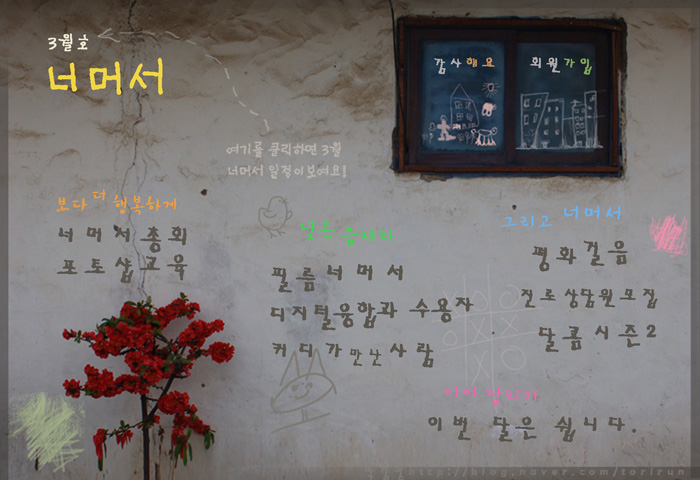 3월호
너머서
감사해요 회원가입
여기를 클릭하면 3월
너머서 일정이 보여요!
보다 더 행복하게
너머서 총회
포토샵교육
필름너머서
디지털융합과 수용자
커디가만난사람
그리고 너머서
평화걸음
진로상담원모집
달름시즌2
이어 달리기
이번 달은 쉽니다.
http://blog.naver.com/torirun